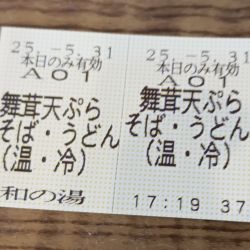 25.-5.31
本日のみ有効
A01
舞茸天ぷら
そば・うどん
(温・冷)
和の湯
25.-5.31
本日のみ有効
A0
舞茸天ぷら
そば・うどん
(温・冷)
17:19 37